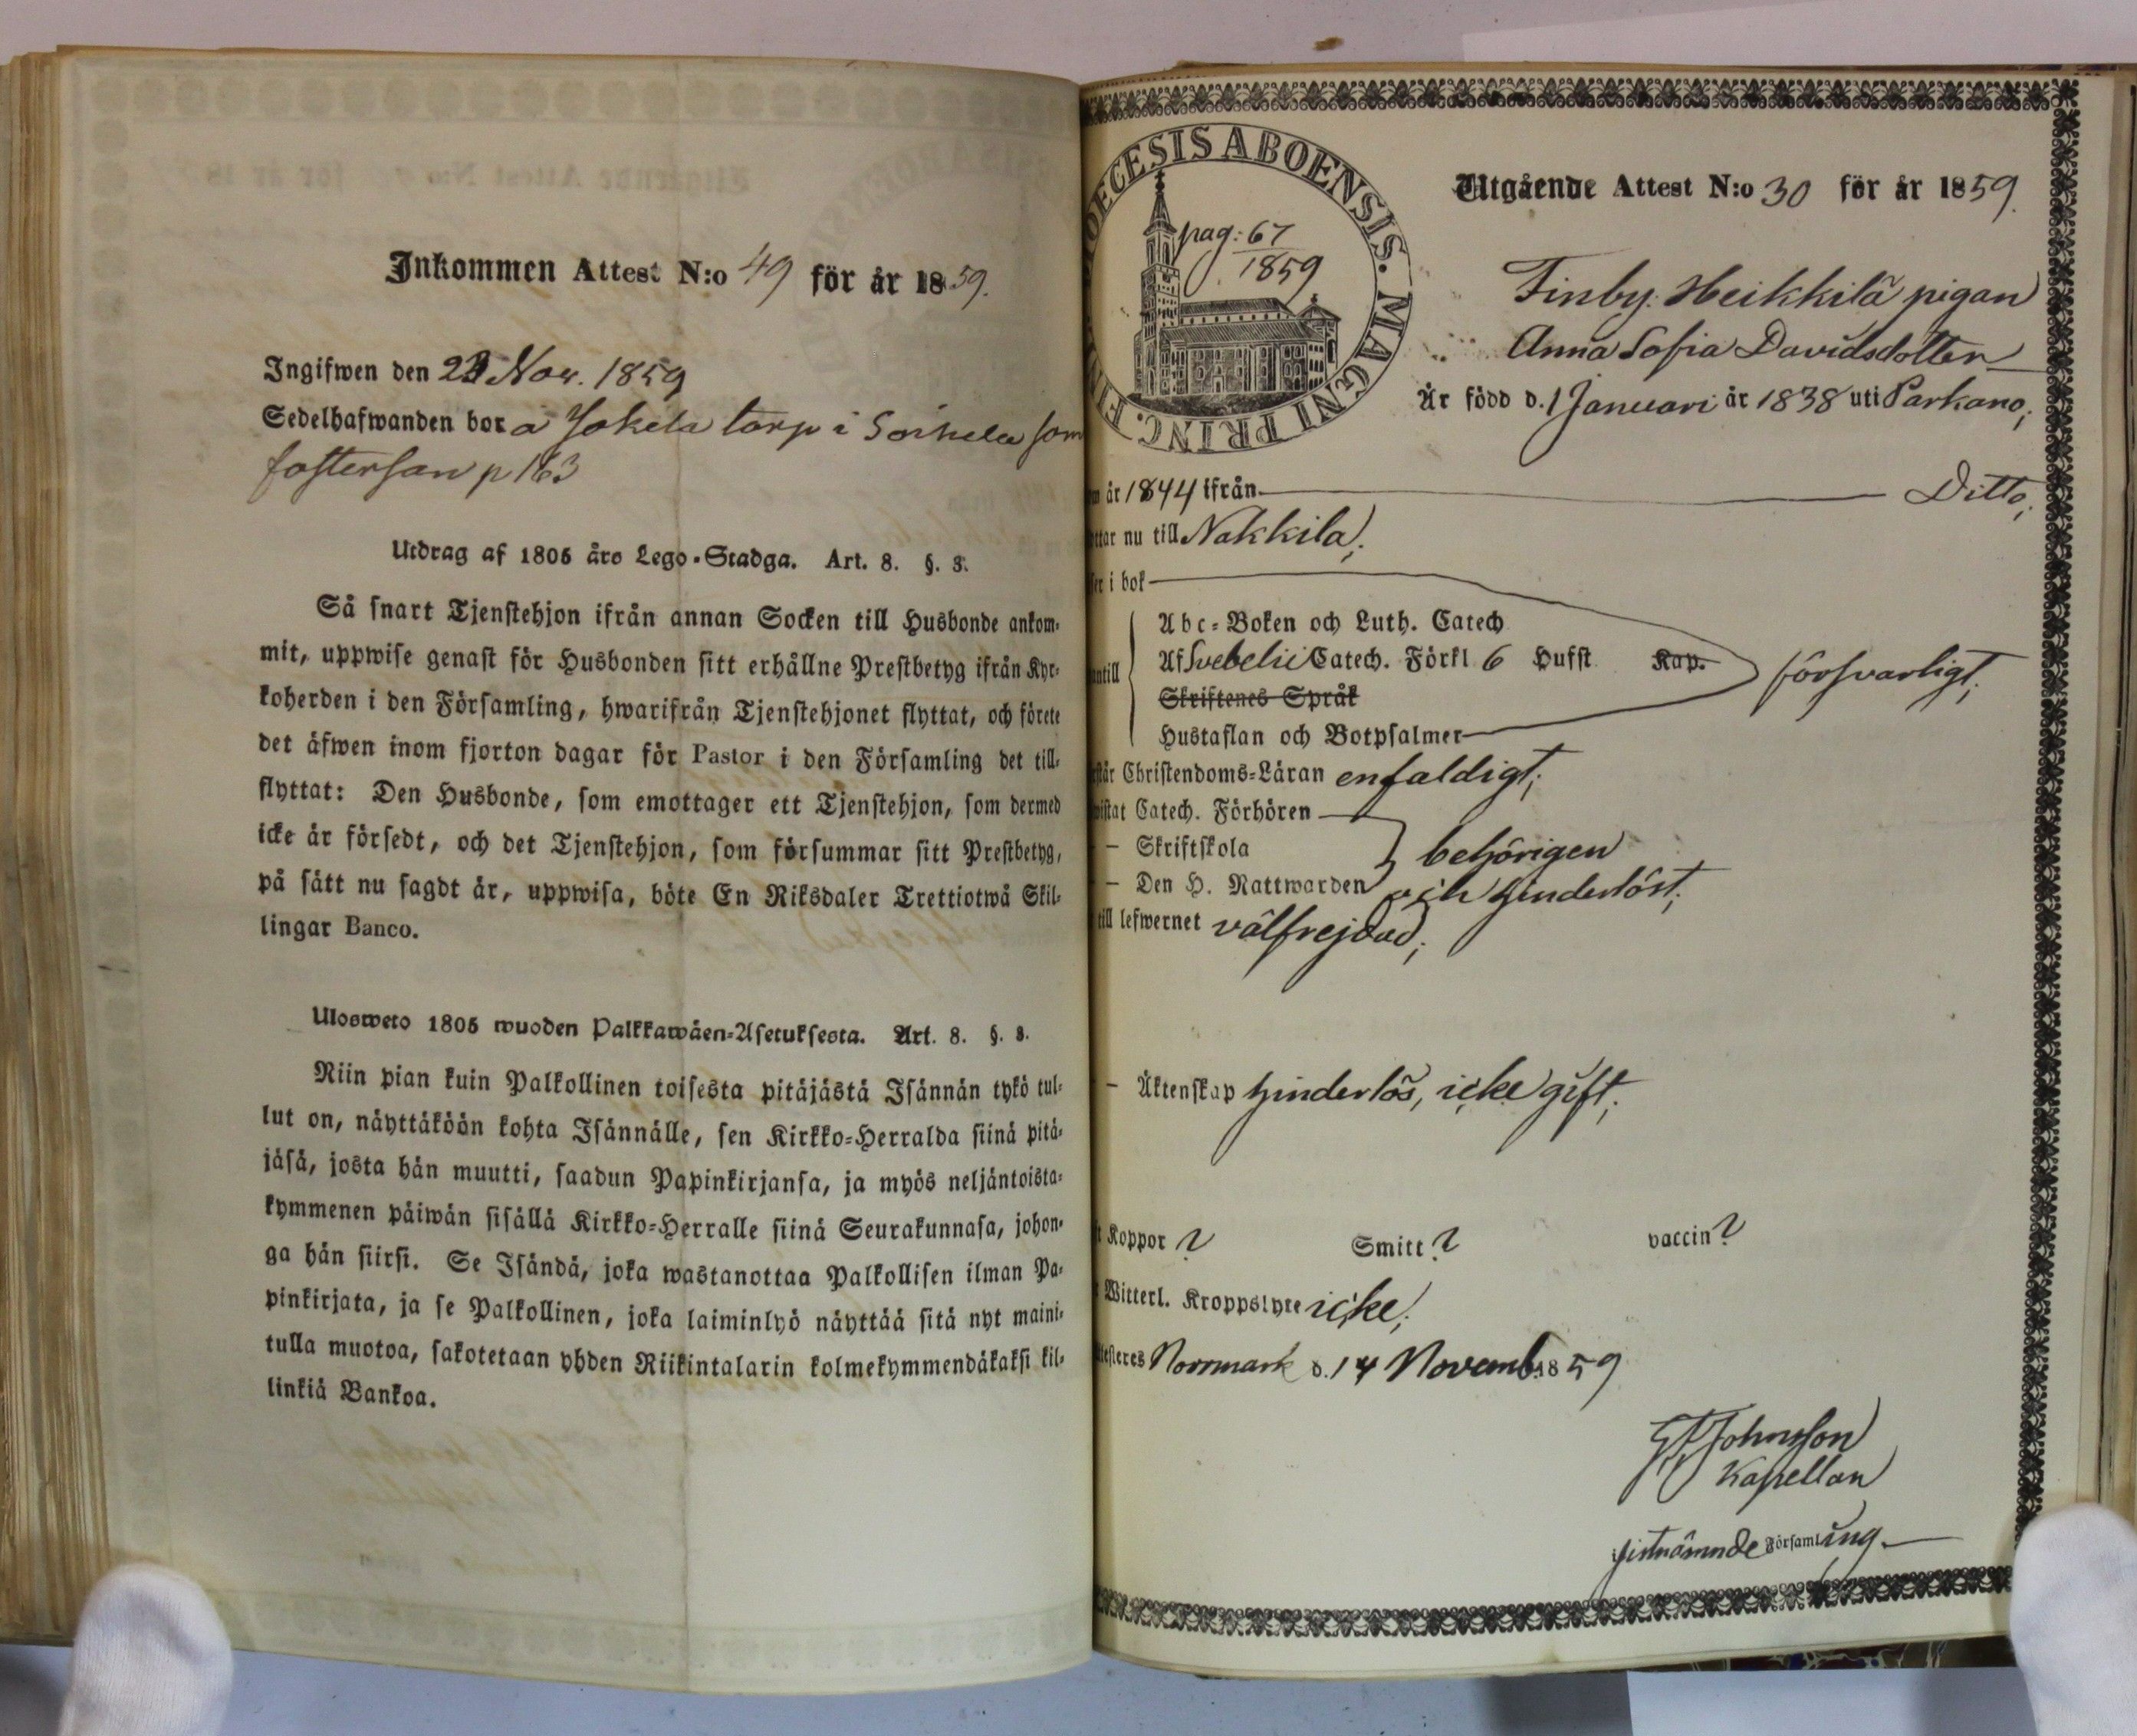 Inkommen Attest N:o 49 för år 1859.
Ingifwen den 23 Nov. 1859
Sedelhafwanden bor å Jokela torp i Soinila som
fosterson p 163
Utdrag af 1805 åro Lego-Stadga. Art. 8. §. 3.
Så snart Tjenstehjon ifrån annan Socken till Husbonde ankom-
mit, uppwise genast för Husbonden sitt erhållne Prestbetyg ifrån Kyr-
koherden i den Församling, hwarifrån Tjenstehjonet flyttat, och förete
det äfwen inom fjorton dagar för Pastor i den Församling det till-
flyttat: Den Husbonde, som emottager ett Tjenstehjon, som dermed
icke är försedt, och det Tjenstehjon, som försummar sitt Prestbetyg,
på sätt nu sagdt är, uppwisa, böte En Riksdaler Trettiotwå Skil-
lingar Banco.
Ulosweto 1805 wuoden Palkkawäen-Asetuksesta. Art. 8. §. 3.
Niin pian kuin Palkollinen toisesta pitäjästä Isännän tykö tul-
lut on, näyttäköön kohta Isännälle, sen Kirkko-Herralda siinä pitä-
jäsä, josta hän muutti, saadun Papinkirjansa, ja myös neljäntoista-
kymmenen päiwän sisällä Kirkko-Herralle siinä Seurakunnasa, johon-
ga hän siirsi. Se Isändä, joka wastanottaa Palkollisen ilman Pa-
pinkirjata, ja se Palkollinen, joka laiminlyö näyttää sitä nyt maini-
tulla muotoa, sakotetaan yhden Riikintalarin kolmekymmendäkaksi kil-
linkiä Bankoa.
DIOECESIS ABOENSIS. MAGNI PRINC. FINL
pag: 67
1859
Utgående Attest N:o 30 för år 1859.
Finby Heikkilä pigan
Anna Sofia Davidsdotter
Är född d. 1 Januari år 1838 uti Parkano;
år 1844 ifrån Ditto;
ttar nu till Nakkila;
ser i bok
Abc-Boken och Luth. Catech
antill Af Svebelii Catech. Förkl 6 Hufst Kap. försvarligt;
Skriftenes Språk
Hustaflan och Botpsalmer
står Christendoms-Läran enfaldigt;
wistat Catech. Förhören
— Skriftskola behörigen
— Den H. Nattwarden och hinderlöst;
till lefwernet välfrejdad;
— Äktenskap hinderlös, icke gift;
t Koppor ? Smitt ? vaccin ?
Witterl. Kroppslyte icke;
testeres Norrmark d. 14 Novemb. 1859
Johnsson
Kapellan
i sistnämnde Församling.